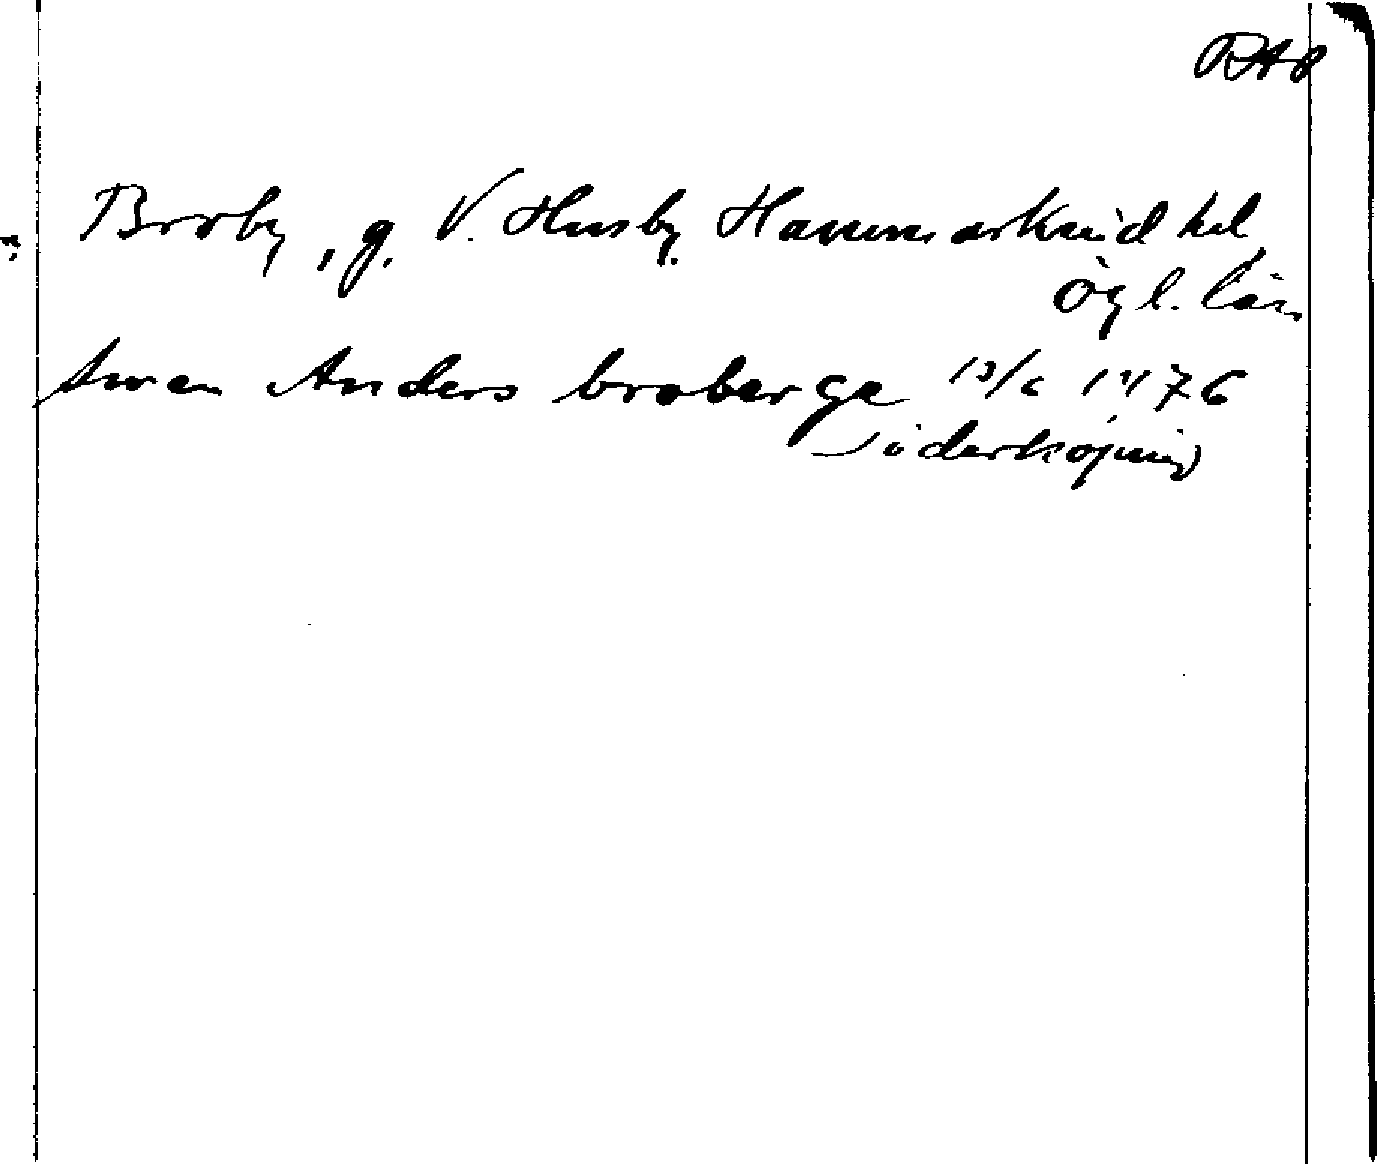 RAP
Broby, g. V. Husby Hammarkind hd
Ögl. län
Swen Anders broberge 13/6 1476
Söderköping